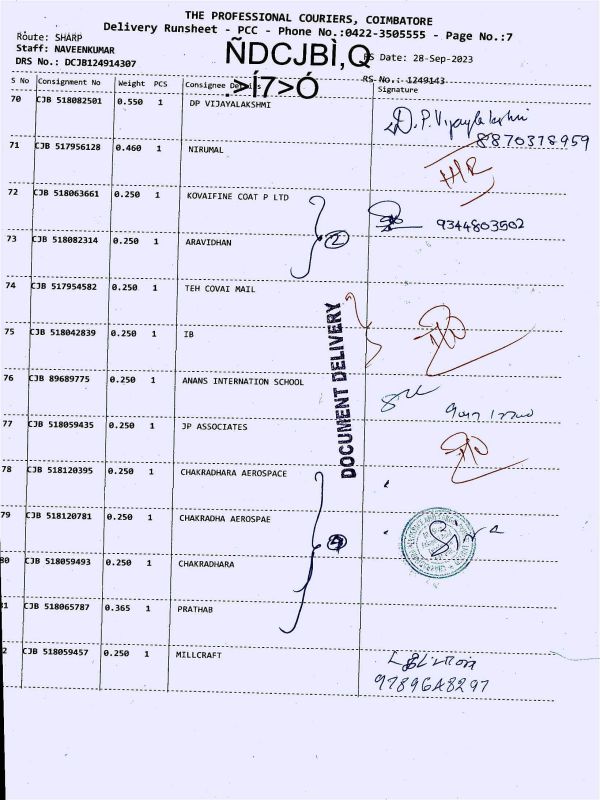 THE PROFESSIONAL COURIERS, COIMBATORE
Delivery Runsheet - PCC - Phone No.:0422-3505555 - Page No.:7
Route: SHARP
Staff: NAVEENKUMAR
DRS No.: DCJB124914307
ÑDCJBÌ,Q
.>Í7>Ó
Date: 28-Sep-2023
RS No.: 1249143
S No Consignment No Weight PCS Consignee Details Signature
70 CJB 518082501 0.550 1 DP VIJAYALAKSHMI
D.P. Vijayalakshmi
8870378959
71 CJB 517956128 0.460 1 NIRUMAL
72 CJB 518063661 0.250 1 KOVAIFINE COAT P LTD
9344803502
2
73 CJB 518082314 0.250 1 ARAVIDHAN
74 CJB 517954582 0.250 1 TEH COVAI MAIL
DOCUMENT DELIVERY
75 CJB 518042839 0.250 1 IB
76 CJB 89689775 0.250 1 ANANS INTERNATION SCHOOL
77 CJB 518059435 0.250 1 JP ASSOCIATES
78 CJB 518120395 0.250 1 CHAKRADHARA AEROSPACE
79 CJB 518120781 0.250 1 CHAKRADHA AEROSPAE
4
Siva
80 CJB 518059493 0.250 1 CHAKRADHARA
1 CJB 518065787 0.365 1 PRATHAB
2 CJB 518059457 0.250 1 MILLCRAFT
9789648297